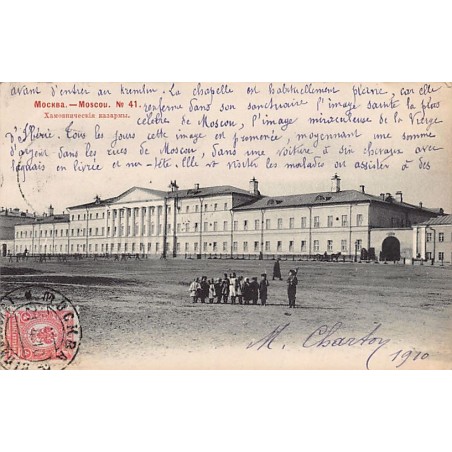 avant d'entrer au Kremlin. La chapelle est habituellement pleine, car elle
Москва. — Moscou. № 41. renferme dans son sanctuaire l'image sainte la plus
Хамовническія казармы. célèbre de Moscou, l'image miraculeuse de la Vierge
d'Ibérie. Tous les jours cette image est promenée, moyennant une somme
d'argent dans les rues de Moscou, dans une voiture à six chevaux avec
laquais en livrée et nu-tête. Elle va visiter les malades ou assister à des
M. Charton
1910